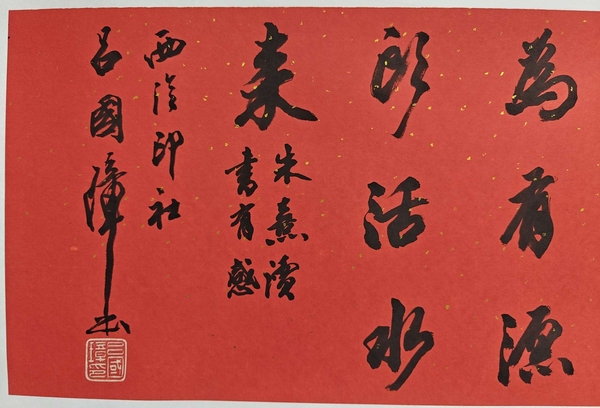 為有源
頭活水
来
朱熹讀
書有感
西泠印社
吕國璋书